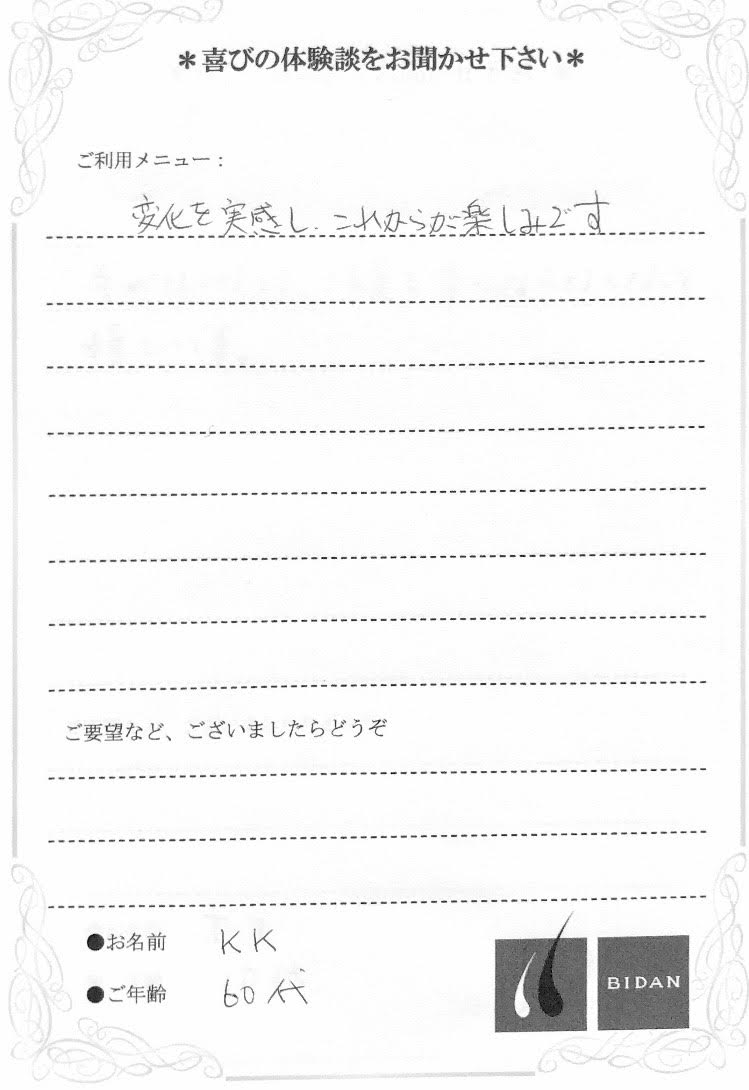 ＊喜びの体験談をお聞かせ下さい＊
ご利用メニュー：
変化を実感し、これからが楽しみです
ご要望など、ございましたらどうぞ
●お名前 KK
●ご年齢 60代
BIDAN